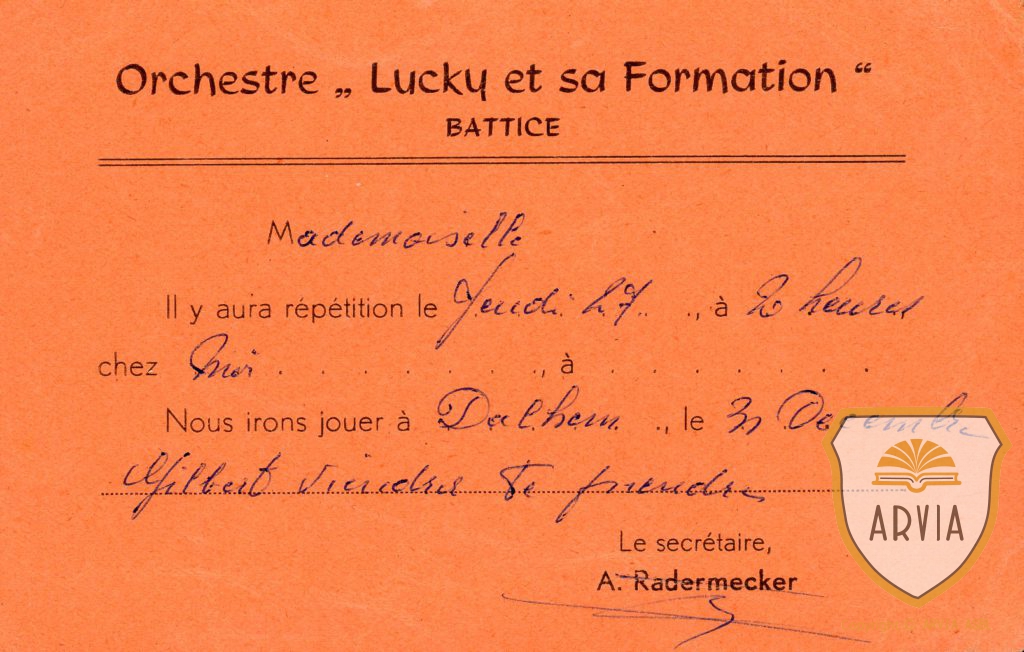 Orchestre „ Lucky et sa Formation “
BATTICE
Mademoiselle
Il y aura répétition le Jeudi 27 . ., à 2 heures
chez Moi . . . . . . . ., à . . . . . . . .
Nous irons jouer à Dalhem ., le 31 Decembre
Gilbert viendra te prendre
Le secrétaire,
A. Radermecker
ARVIA